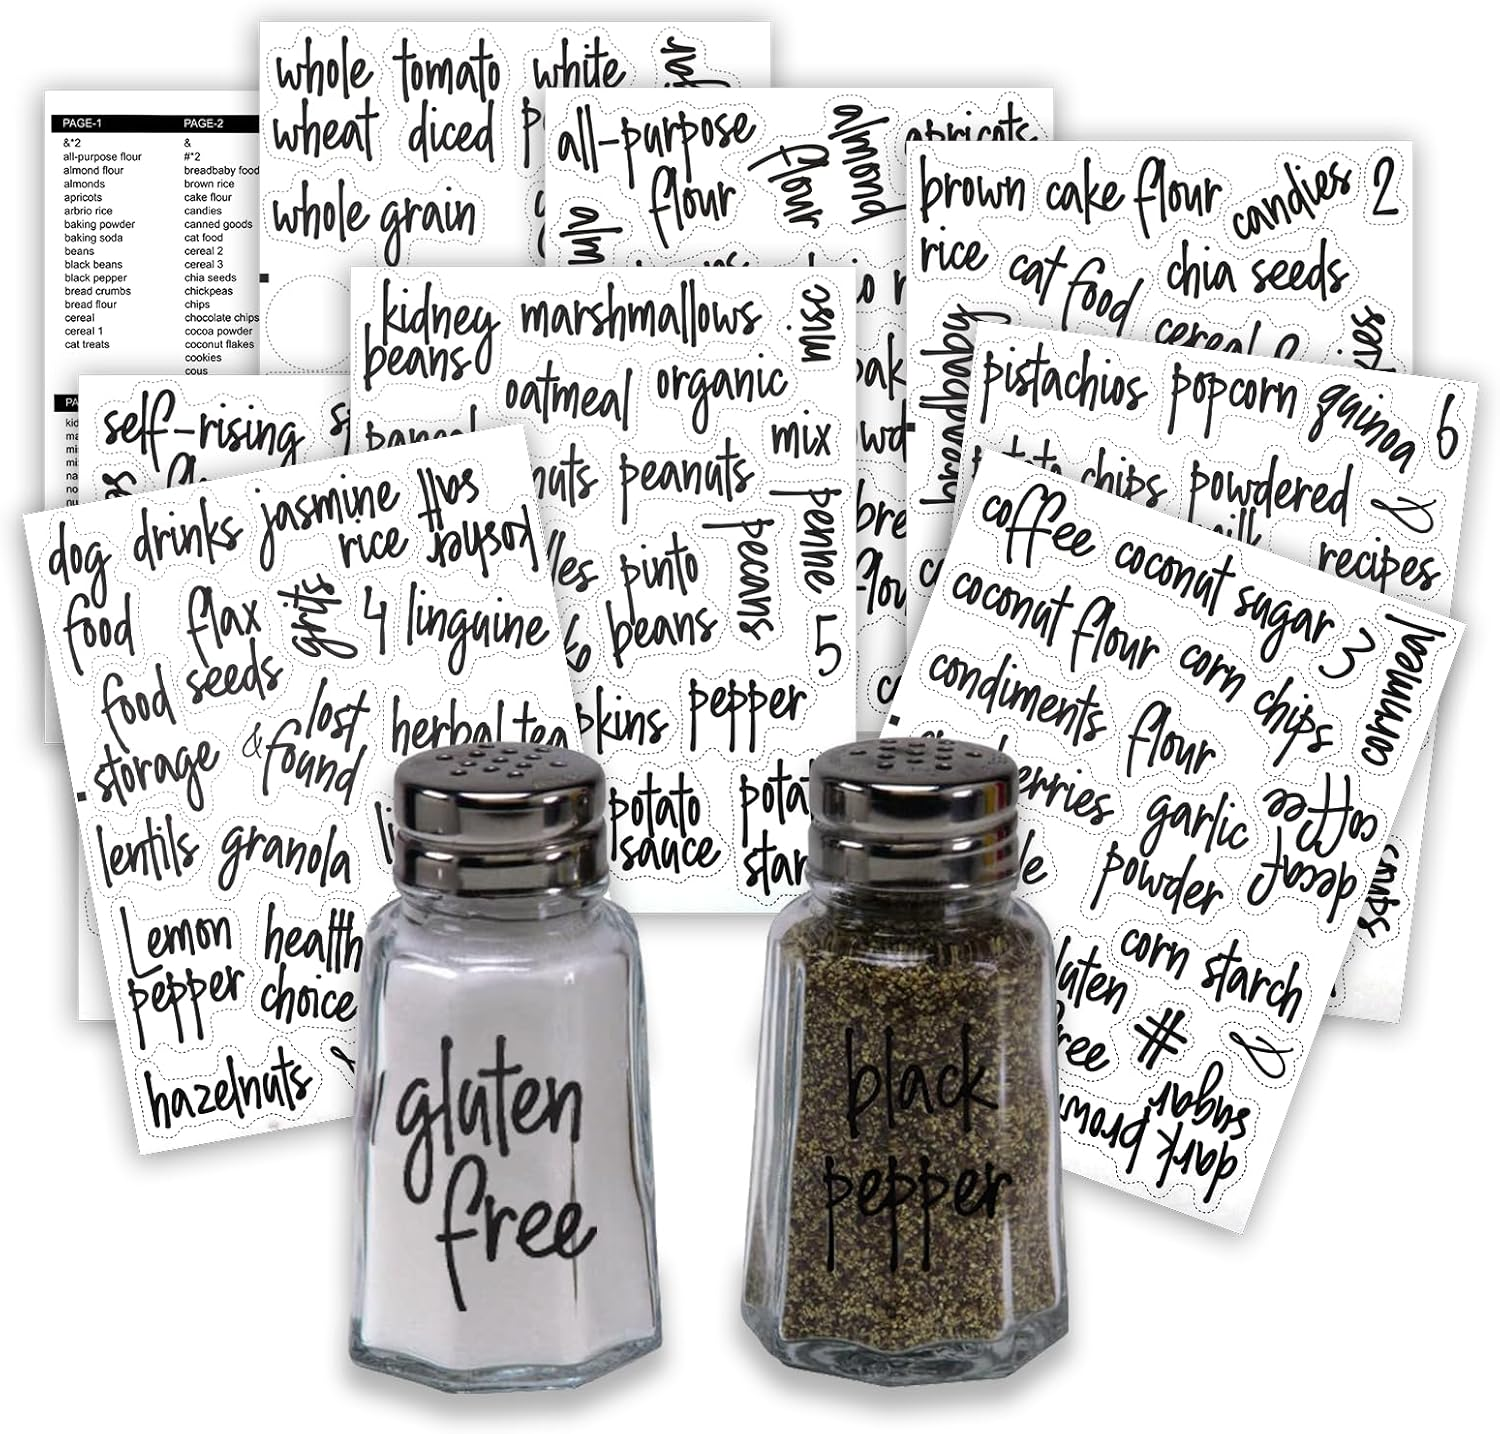 PAGE-1
&*2
all-purpose flour
almond flour
almonds
apricots
arbrio rice
baking powder
baking soda
beans
black beans
black pepper
bread crumbs
bread flour
cereal
cereal 1
cat treats
PAGE-2
&
#*2
breadbaby food
brown rice
cake flour
candies
canned goods
cat food
cereal 2
cereal 3
chia seeds
chickpeas
chips
chocolate chips
cocoa powder
coconut flakes
cookies
cous
whole
wheat
tomato
diced
white
whole grain
all-purpose
flour
almond
flour
apricots
brown
rice
cake flour
candies
2
cat food
chia seeds
cereal 2
breadbaby
kidney
beans
marshmallows
misc
oatmeal
organic
mix
peanuts
penne
pecans
pinto
beans
5
pepper
potato
sauce
pistachios
popcorn
quinoa
6
chips
powdered
&
recipes
self-rising
dog
food
drinks
jasmine
rice
kosher
salt
flax
seeds
grits
4
linguine
food
storage
lost
& found
herbal tea
lentils
granola
Lemon
pepper
health
choice
hazelnuts
coffee
coconut sugar
3
cornmeal
coconut flour
corn chips
condiments
flour
garlic
powder
decaf
coffee
corn starch
#
&
dark brown
sugar
gluten
free
black
pepper